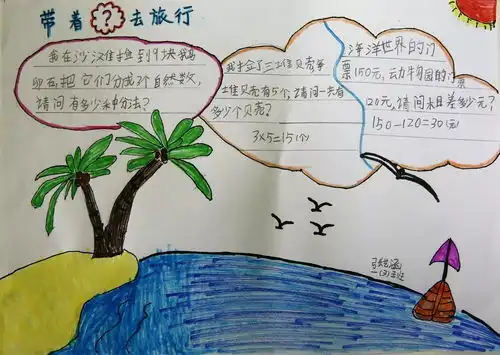 带着?去旅行
我在沙滩堆捡到9块鹅
卵石把它们分成2个自然数,
请问有多少种分法?
我捡了三堆贝壳每
堆贝壳有5个,请问一共有
多少个贝壳?
3×5=15(个)
海洋世界的门
票150元,动物园的门票
120元,请问相差多少元?
150-120=30(元)
一(3)班